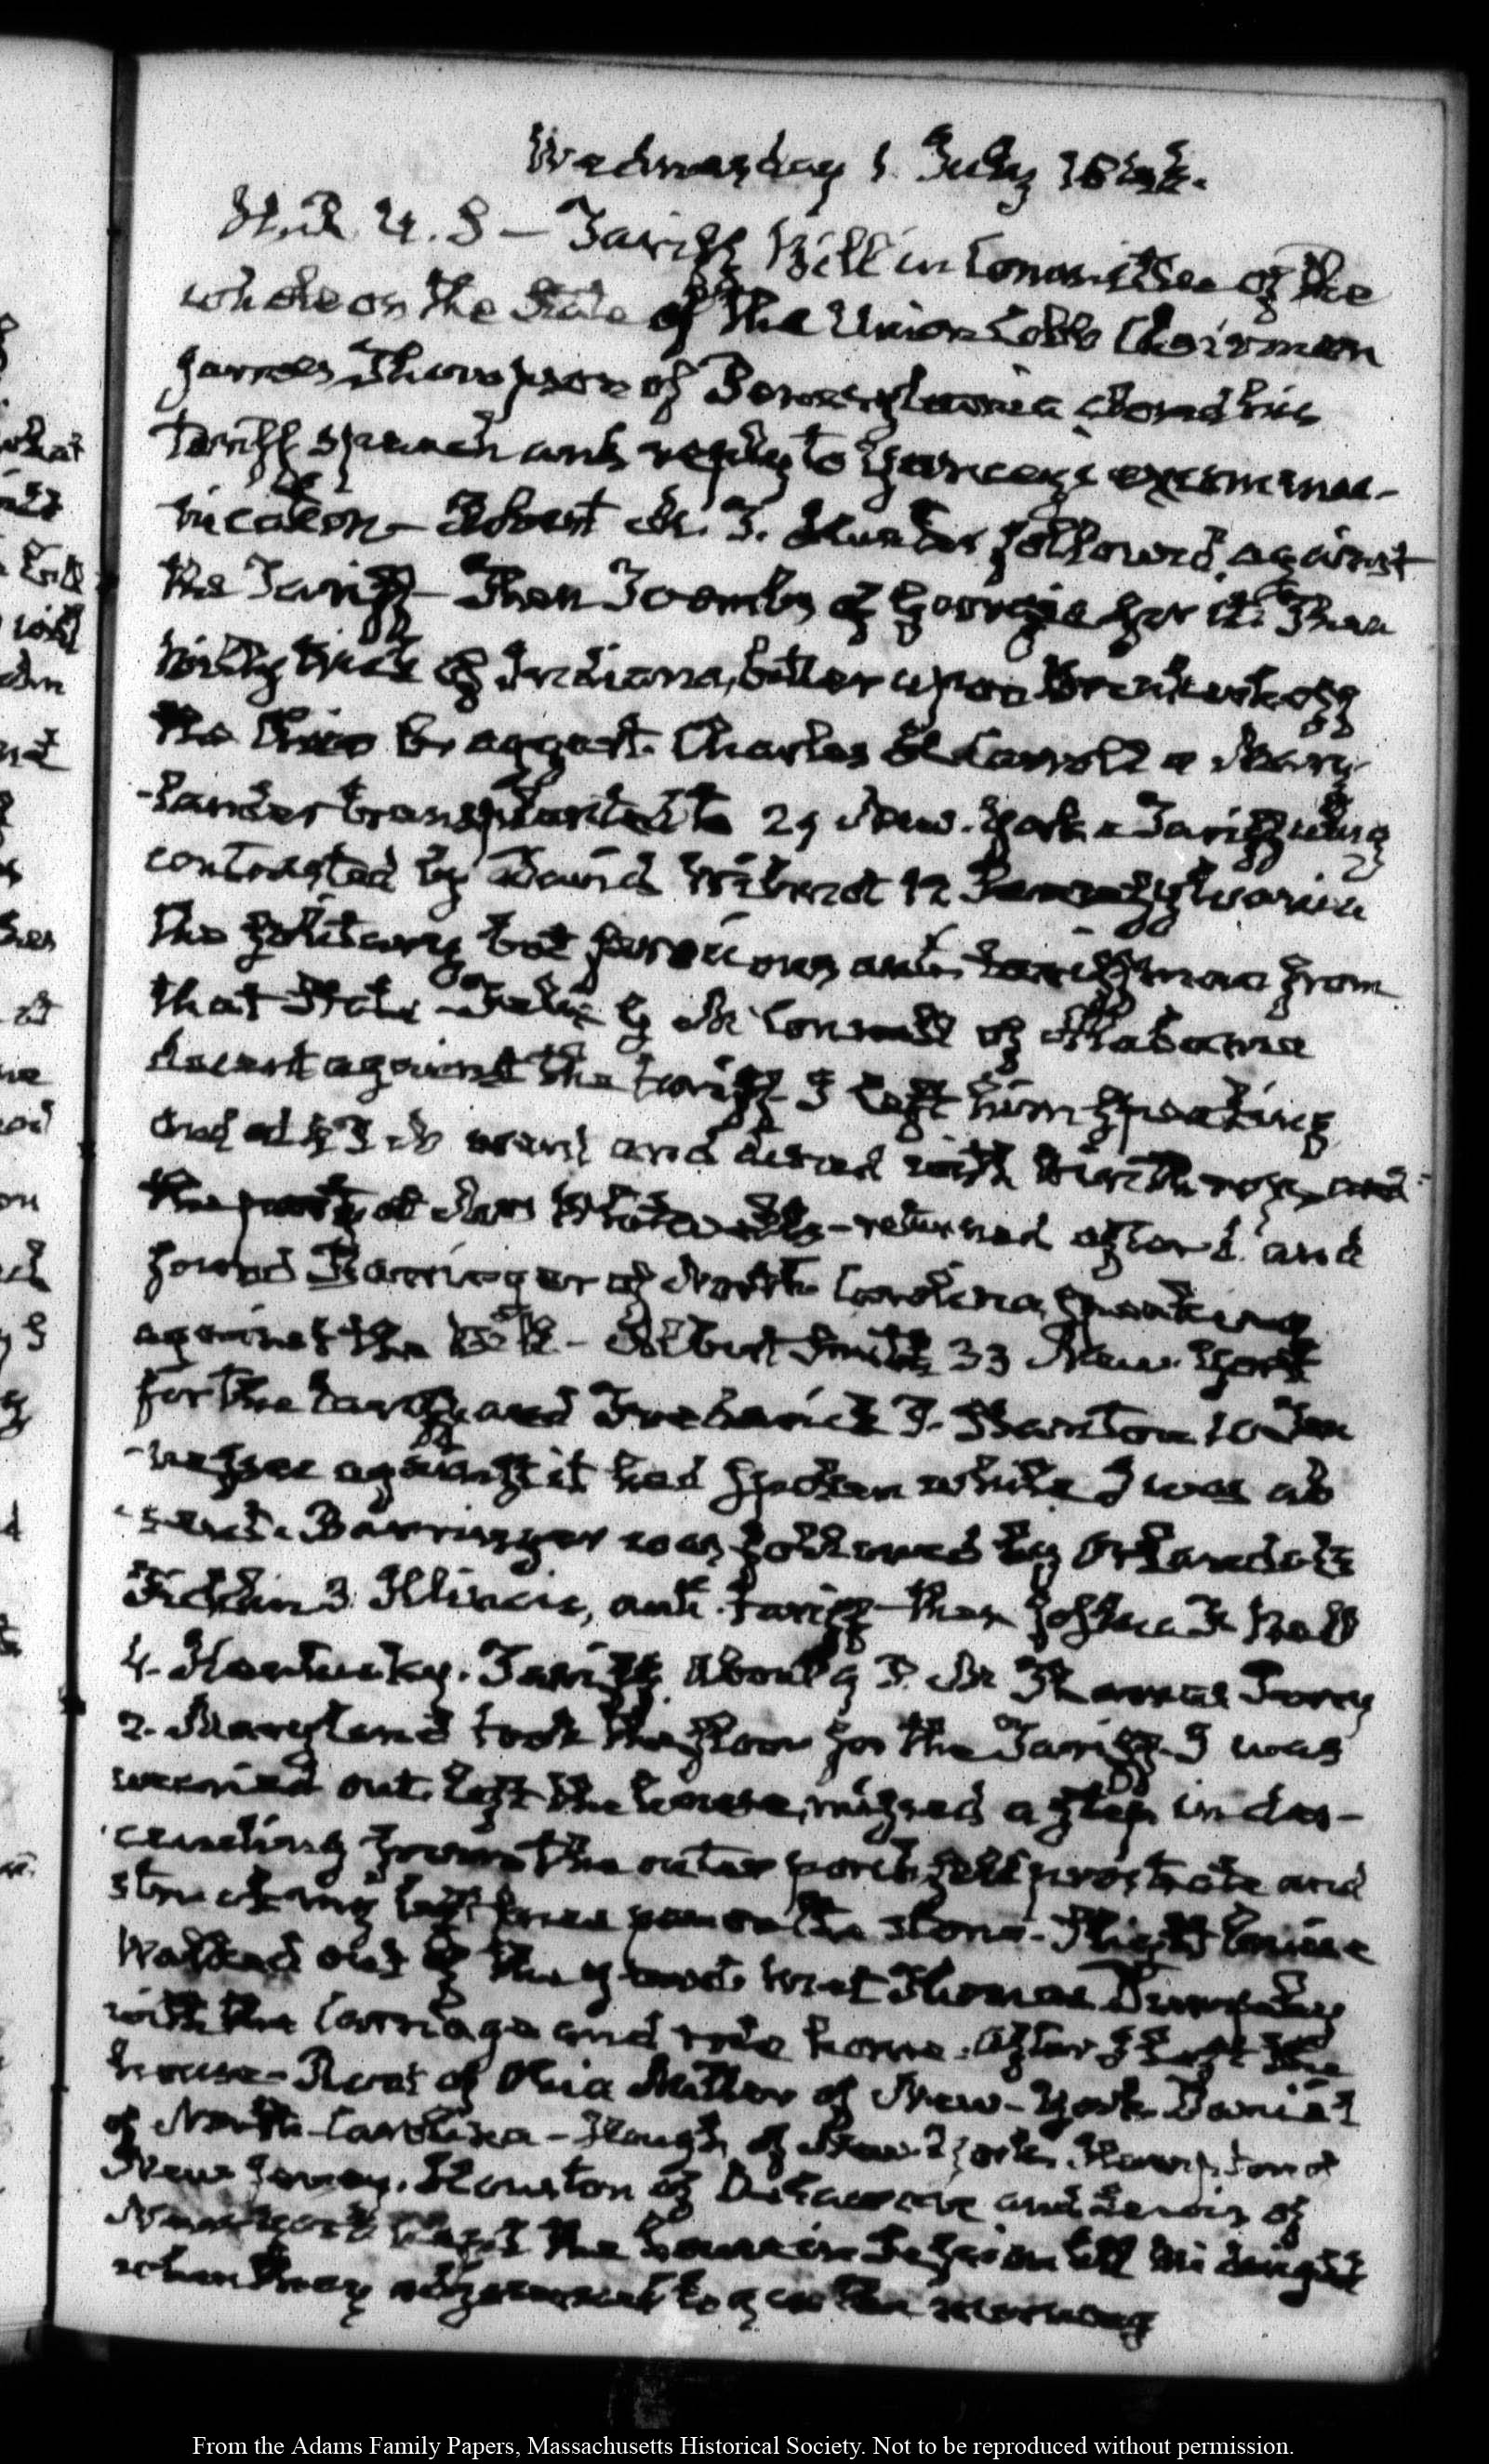 Wednesday 1. July 1846.
H.R. U.S — Tariff Bill in Committee of the
whole on the State of the Union Cobb Chairman
James Thompson of Pennsylvania closed his
tariff speech and reply to Yancey's
Robert M. T. Hunter followed, against
the Tariff — Then Toombs of Georgia for it. Then
of Indiana, bitter upon
the Charles H. Carroll a Mary-
-lander transplanted to 29 New-York a Tariff whig
contrasted by David Wilmot 12 Pennsylvania
the solitary anti tariff man from
that State — Felix G. McConnell of Alabama
against the tariff I left him speaking
and at ½ 3 went and dined with Winthrop, and
the party at Mrs Whitwell's — returned after 5. and
found Barringer of North Carolina, speaking
against the bill — Albert Smith 33 New York
for the tariff, and Frederick P. Stanton 10 Ten
-nessee against it had spoken while I was ab
-sent. Barringer was followed by Orlando B.
Ficklin 3 Illinois, anti-tariff — then Joshua F. Bell
4. Kentucky. Tariff. About 9 P. M Thomas Perry
2. Maryland took the floor for the Tariff. I was
wearied out, left the house, missed a step in des-
cending from the outer porch, fell prostrate and
struck my left knee pan on the stone — Slight bruise
Walked out of the grounds met Thomas Dumpsley
with the carriage and rode home. After I left the
house — Root of Ohio Miller of New-York. Daniel
of North-Carolina — Hough of New York. Hampton of
New Jersey. Houston of Delaware and Lewis of
New York kept the House in Session till midnight
when they adjourned to 9 in the morning
From the Adams Family Papers, Massachusetts Historical Society. Not to be reproduced without permission.